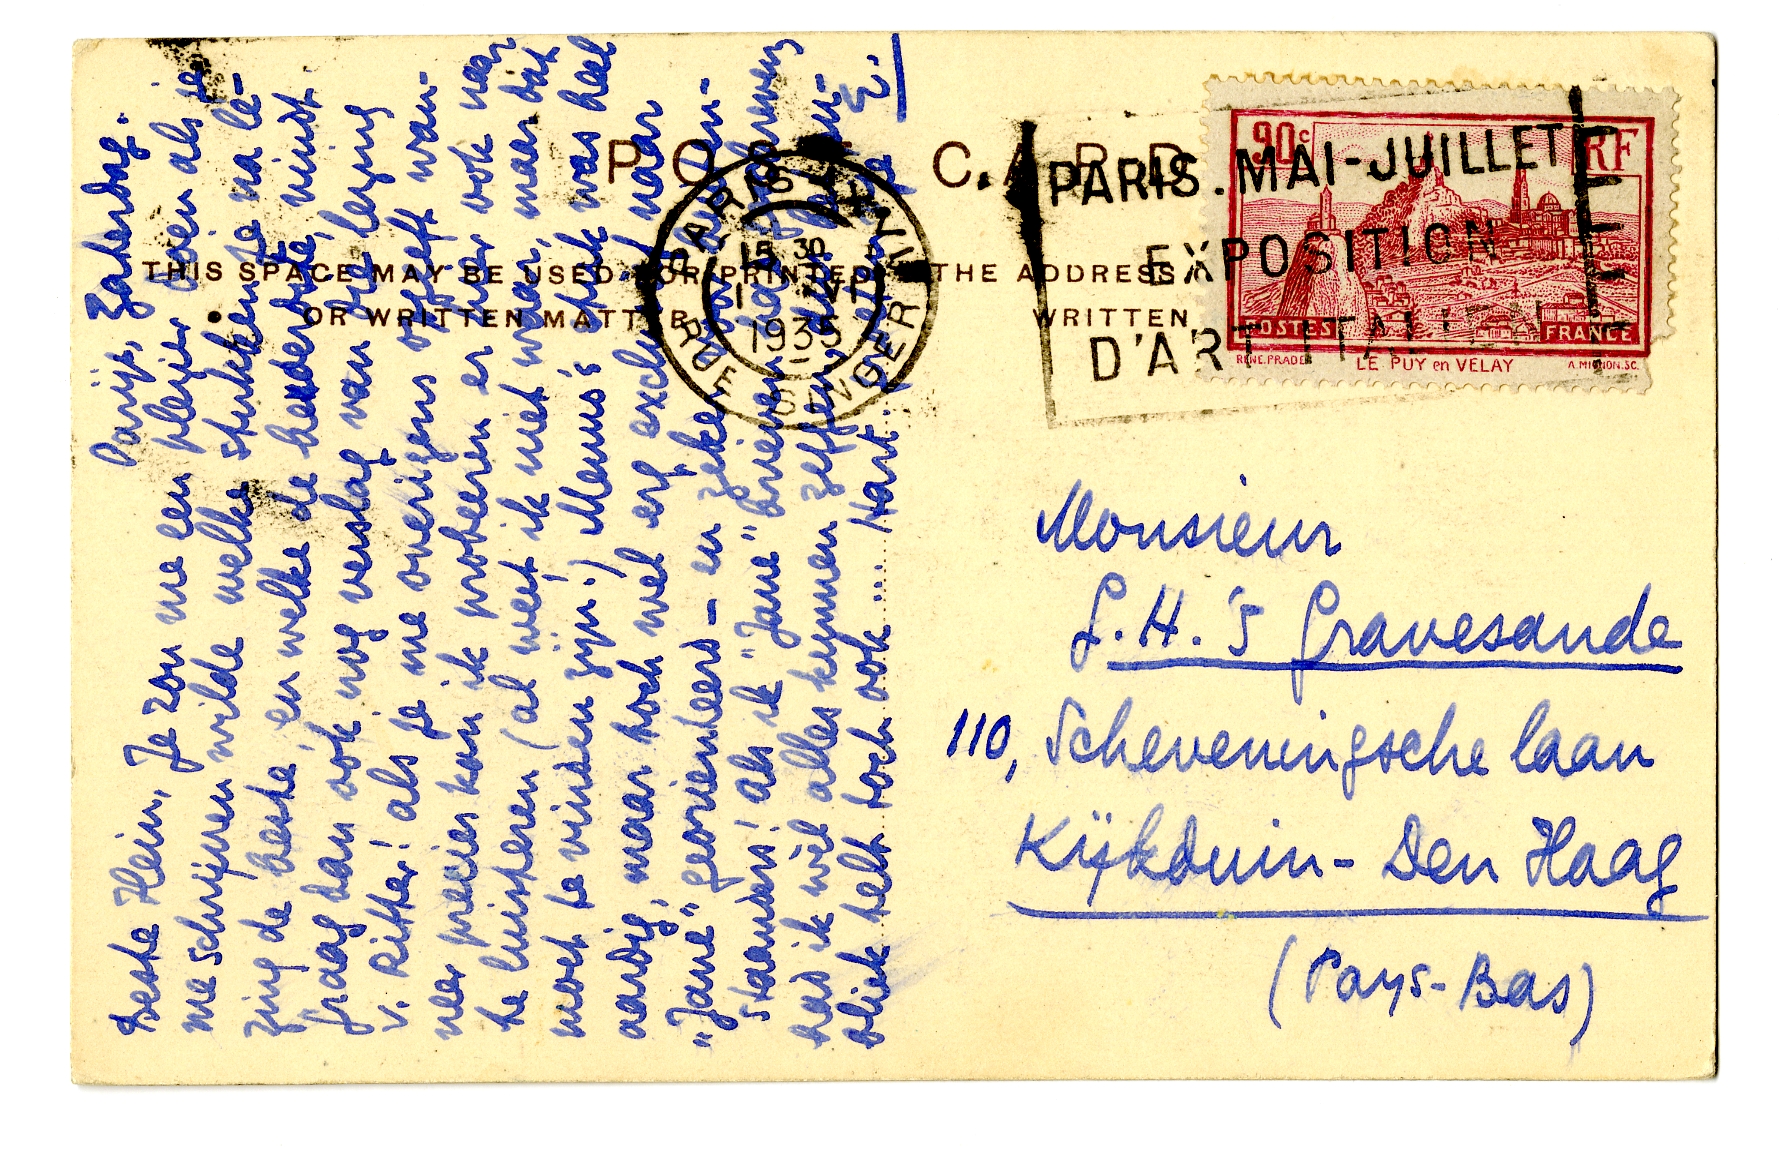 POST CARD
THIS SPACE MAY BE USED FOR PRINTED
OR WRITTEN MATTER
THE ADDRESS
WRITTEN
PARIS XVI
15 30
1935
RUE SINGER
PARIS. MAI-JUILLET
EXPOSITION
D'ART ITALIEN
90c
RF
POSTES
FRANCE
RENE.PRADE
LE PUY en VELAY
A.MIGNON.SC.
Parijs, Zaterdag.
Beste Hein, Je zou me een pleizier doen als je
me schrijven wilde welke stukken je na le-
zing de beste, en welke de beroerdste, vindt.
Graag dan ook nog verslag van die lezing
v. Ritter! als je me overigens opgeeft wan-
neer precies kan ik probeeren er hier ook naar
te luisteren (al weet ik niet waar, maar dat
moet te vinden zijn.) Menno's stuk was heel
aardig, maar toch wel erg exclusief naar
"Jane" georienteerd - en zeker
Staandas! als ik "Jane" brieven
had ik wel alles kunnen
bliek telt toch ook... Hart.
E.
Monsieur
G. H. 's Gravesande
110, Scheveningsche laan
Kijkduin - Den Haag
(Pays-Bas)